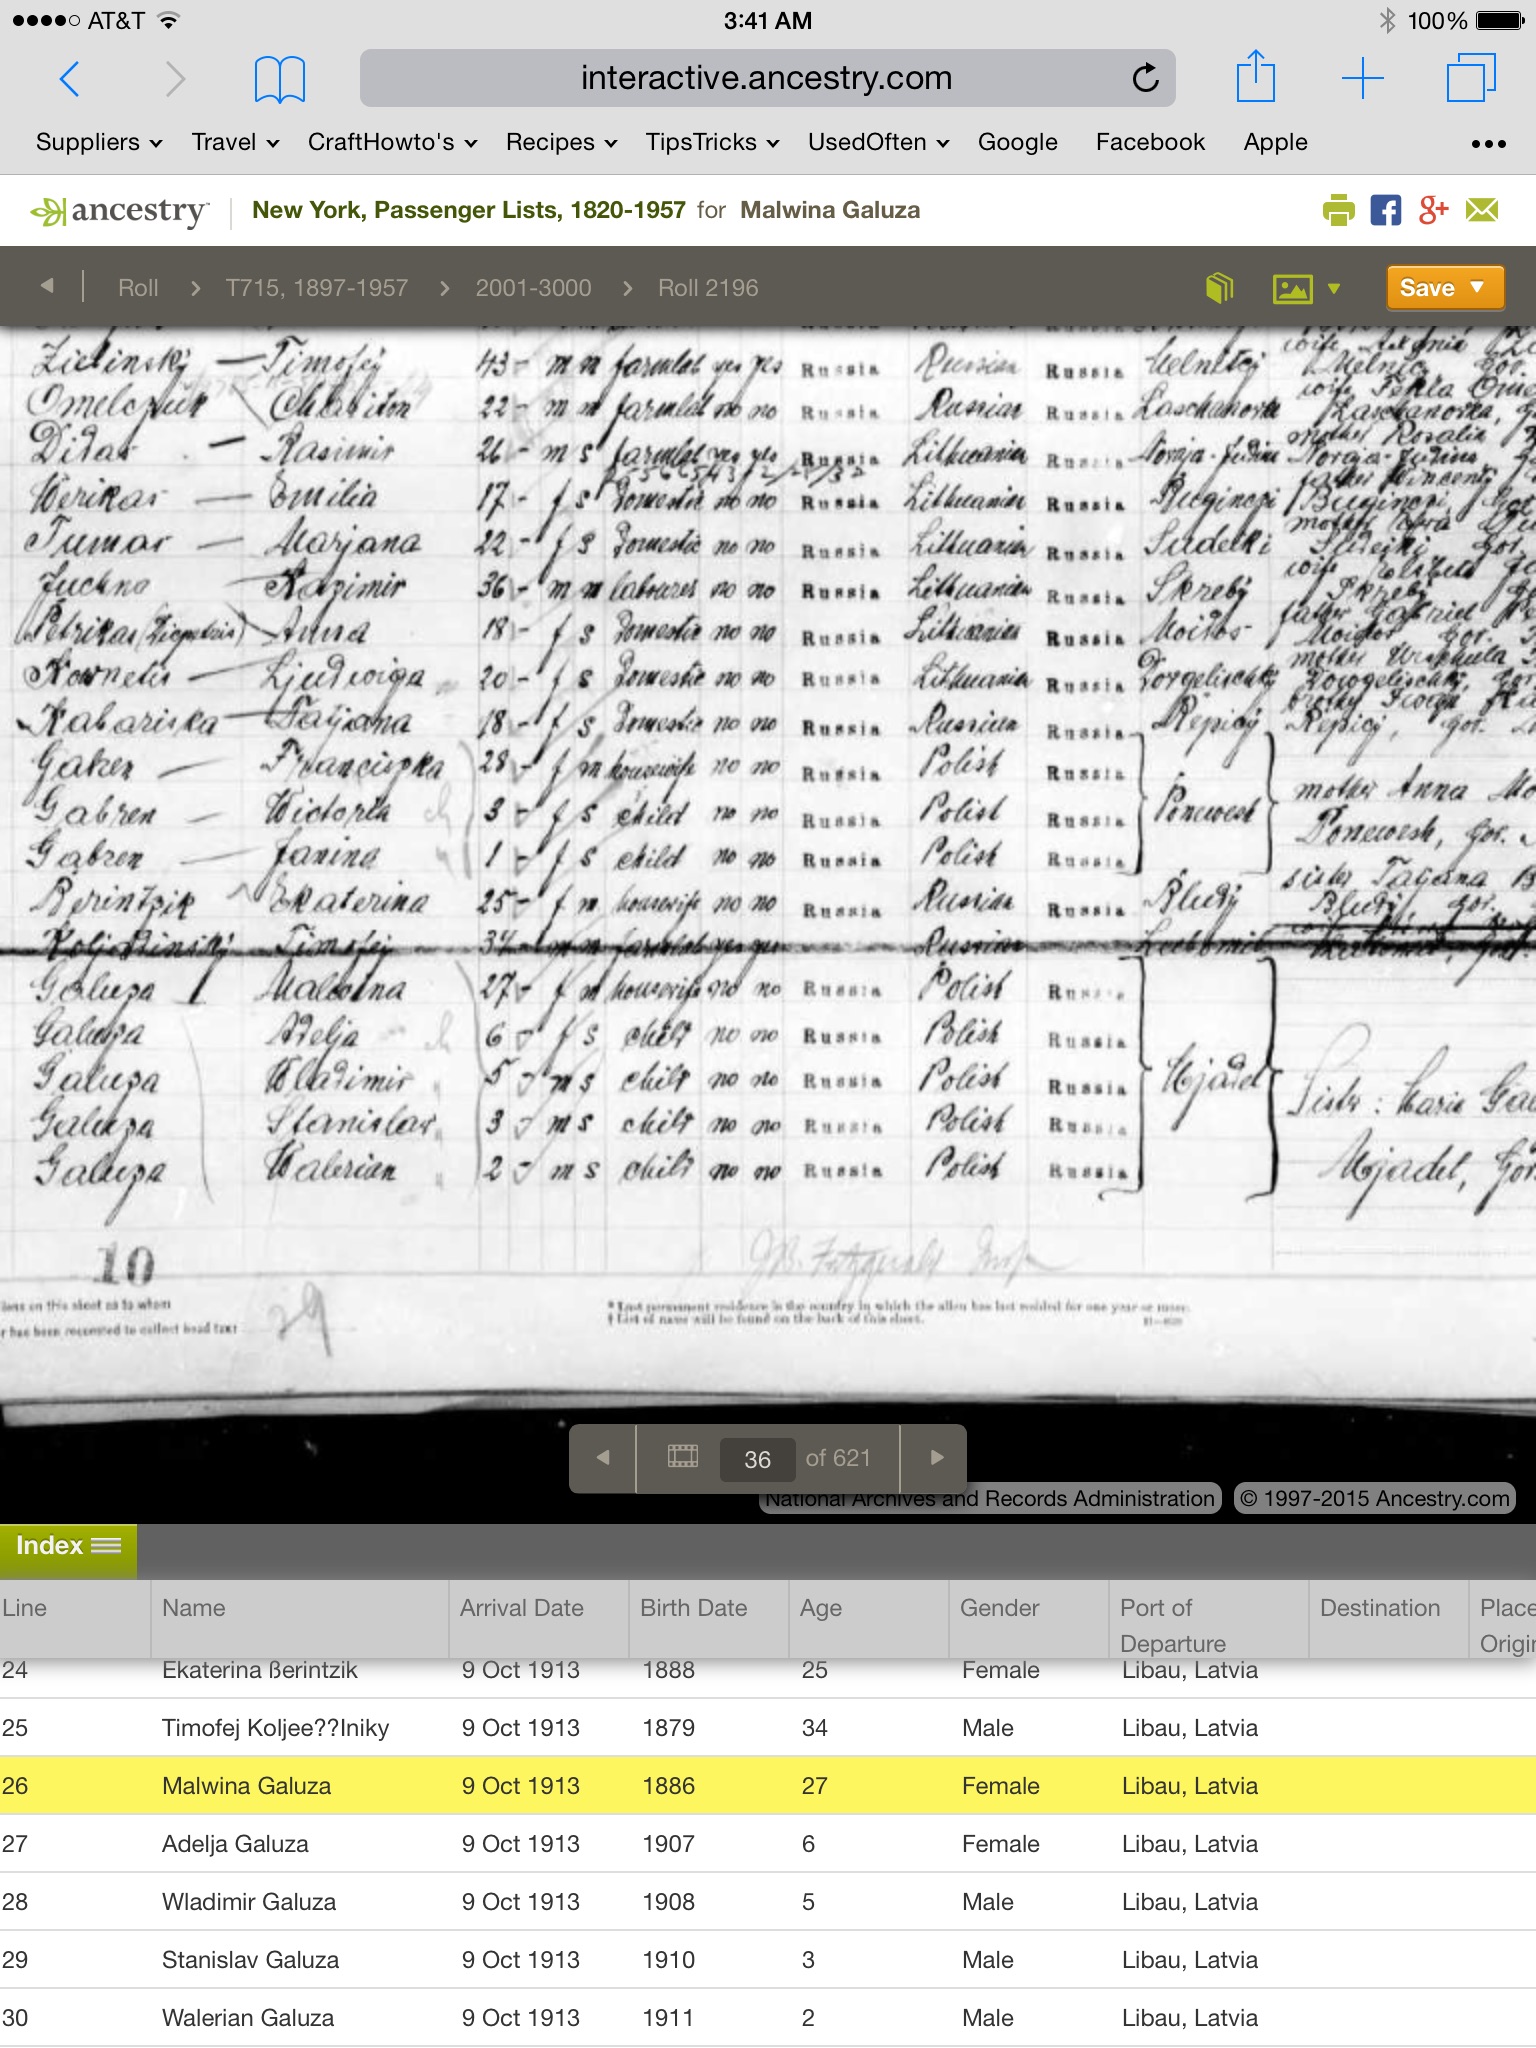 AT&T 3:41 AM 100%
interactive.ancestry.com
Suppliers Travel CraftHowto's Recipes TipsTricks UsedOften Google Facebook Apple •••
ancestry New York, Passenger Lists, 1820-1957 for Malwina Galuza
Roll > T715, 1897-1957 > 2001-3000 > Roll 2196 Save
Zielinskÿ — Timofej 43 - m m farmlab yes yes Russia Russian Russia
Omelczuk Chariton 22 - m m farmlab no no Russia Russian Russia Laschanovka
Didar - Kasimir 26 - m s farmlab yes yes Russia Lithuanian Russia
Werikas — Emilia 17 - f s Domestic no no Russia Lithuanian Russia
Tumas — Marjana 22 - f s Domestic no no Russia Lithuanian Russia Sudeiki
Juchno Kazimir 36 - m m labourer no no Russia Lithuanian Russia Skreby
Petrikas Anna 18 - f s Domestic no no Russia Lithuanian Russia
Ljudwiga 20 - f s Domestic no no Russia Lithuanian Russia
Kabariska Tatjana 18 - f s Domestic no no Russia Russian Russia Repicy
Gabren — Franciszka 28 - f m housewife no no Russia Polish Russia
Gabren — Wictoria 3 - f s child no no Russia Polish Russia Ponewesh mother Anna
Gabren — Janina 1 - f s child no no Russia Polish Russia Ponewesh, Gor.
Berintzik Ekaterina 25 - f m housewife no no Russia Russian Russia Bludy sister Tatjana
Timofej 34 - m m farmlab yes yes Russian
Galuza Malwina 27 - f m housewife no no Russia Polish Russia
Galuza Adelja 6 - f s child no no Russia Polish Russia
Galuza Wladimir 5 - m s child no no Russia Polish Russia Mjadel
Galuza Stanislav 3 - m s child no no Russia Polish Russia Sister: Marie
Galuza Walerian 2 - m s child no no Russia Polish Russia Mjadel, Gor.
10
29
* Last permanent residence is the country in which the alien has last resided for one year or more.
† List of name will be found on the back of this sheet.
36 of 621
National Archives and Records Administration © 1997-2015 Ancestry.com
Index
Line Name Arrival Date Birth Date Age Gender Port of Departure Destination Place Origin
24 Ekaterina ßerintzik 9 Oct 1913 1888 25 Female Libau, Latvia
25 Timofej Koljee??Iniky 9 Oct 1913 1879 34 Male Libau, Latvia
26 Malwina Galuza 9 Oct 1913 1886 27 Female Libau, Latvia
27 Adelja Galuza 9 Oct 1913 1907 6 Female Libau, Latvia
28 Wladimir Galuza 9 Oct 1913 1908 5 Male Libau, Latvia
29 Stanislav Galuza 9 Oct 1913 1910 3 Male Libau, Latvia
30 Walerian Galuza 9 Oct 1913 1911 2 Male Libau, Latvia